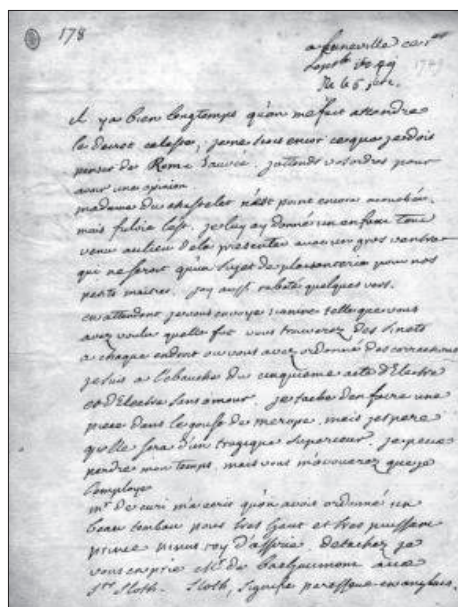 178
a Luneville ce 1er
1749
il ya bien longtemps qu'on me fait attendre
le devot; je ne scais encor ce que je dois
penser de Rome Sauvée. j'attends vos ordres pour
avoir une opinion
madame du chastelet n'est point encore accouchée,
mais fulvie l'est. je luy ay donné un enfant tout
venu au lieu de la presenter avec un gros ventre
qui ne seroit qu'un sujet de plaisanterie pour nos
petits maitres. j'ay aussi raboté quelques vers.
en attendant je vous envoye nanine telle que vous
avez voulu qu'elle fut vous trouverez des
a chaque endroit ou vous avez ordonné des corrections
je suis a l'ebauche du cinquieme acte d'Electre
et d'Electre sans amour. je tache d'en faire une
piece dans le goust de merope, mais j'espere
qu'elle sera d'un tragique superieur. je peux
perdre mon temps, mais vous m'avouerez que je
l'employe
mr de curi m'a ecrit qu'on avoit ordonné un
beau tombau pour tres haut et tres puissant
prince ninus roy d'assirie. detachez je
vous en prie Mr de avec
Sloth. Sloth, signifie paresseux en anglais.